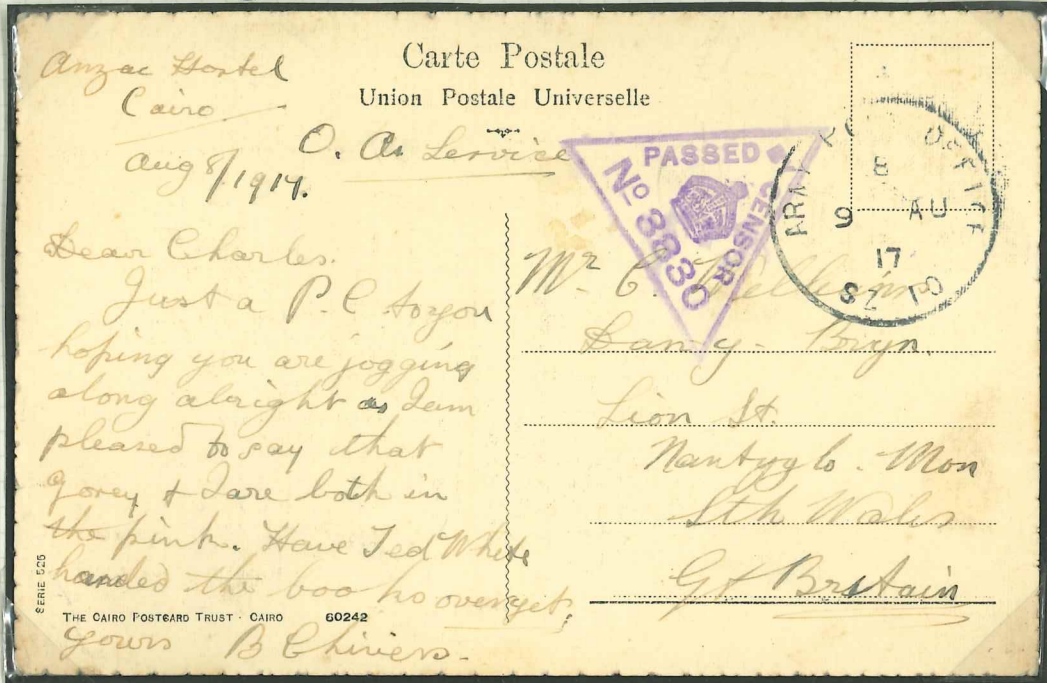 Carte Postale
Union Postale Universelle
Anzac Hostel
Cairo
Aug 8/1917.
O. A. Service
PASSED
CENSOR
No 3830
ARMY POST OFFICE
8
9 AU
17
SZ 10
Dear Charles.
Just a P.C. to you
hoping you are jogging
along alright as I am
pleased to say that
Gorey & I are both in
the pink. Have Ted White
handed the boo ho over yet.
Yours B Chivers.
Mr C.
Dan-y-Bryn,
Lion St.
Nantyglo. Mon
Sth Wales
Gt Britain
SERIE 525
THE CAIRO POSTCARD TRUST - CAIRO 60242